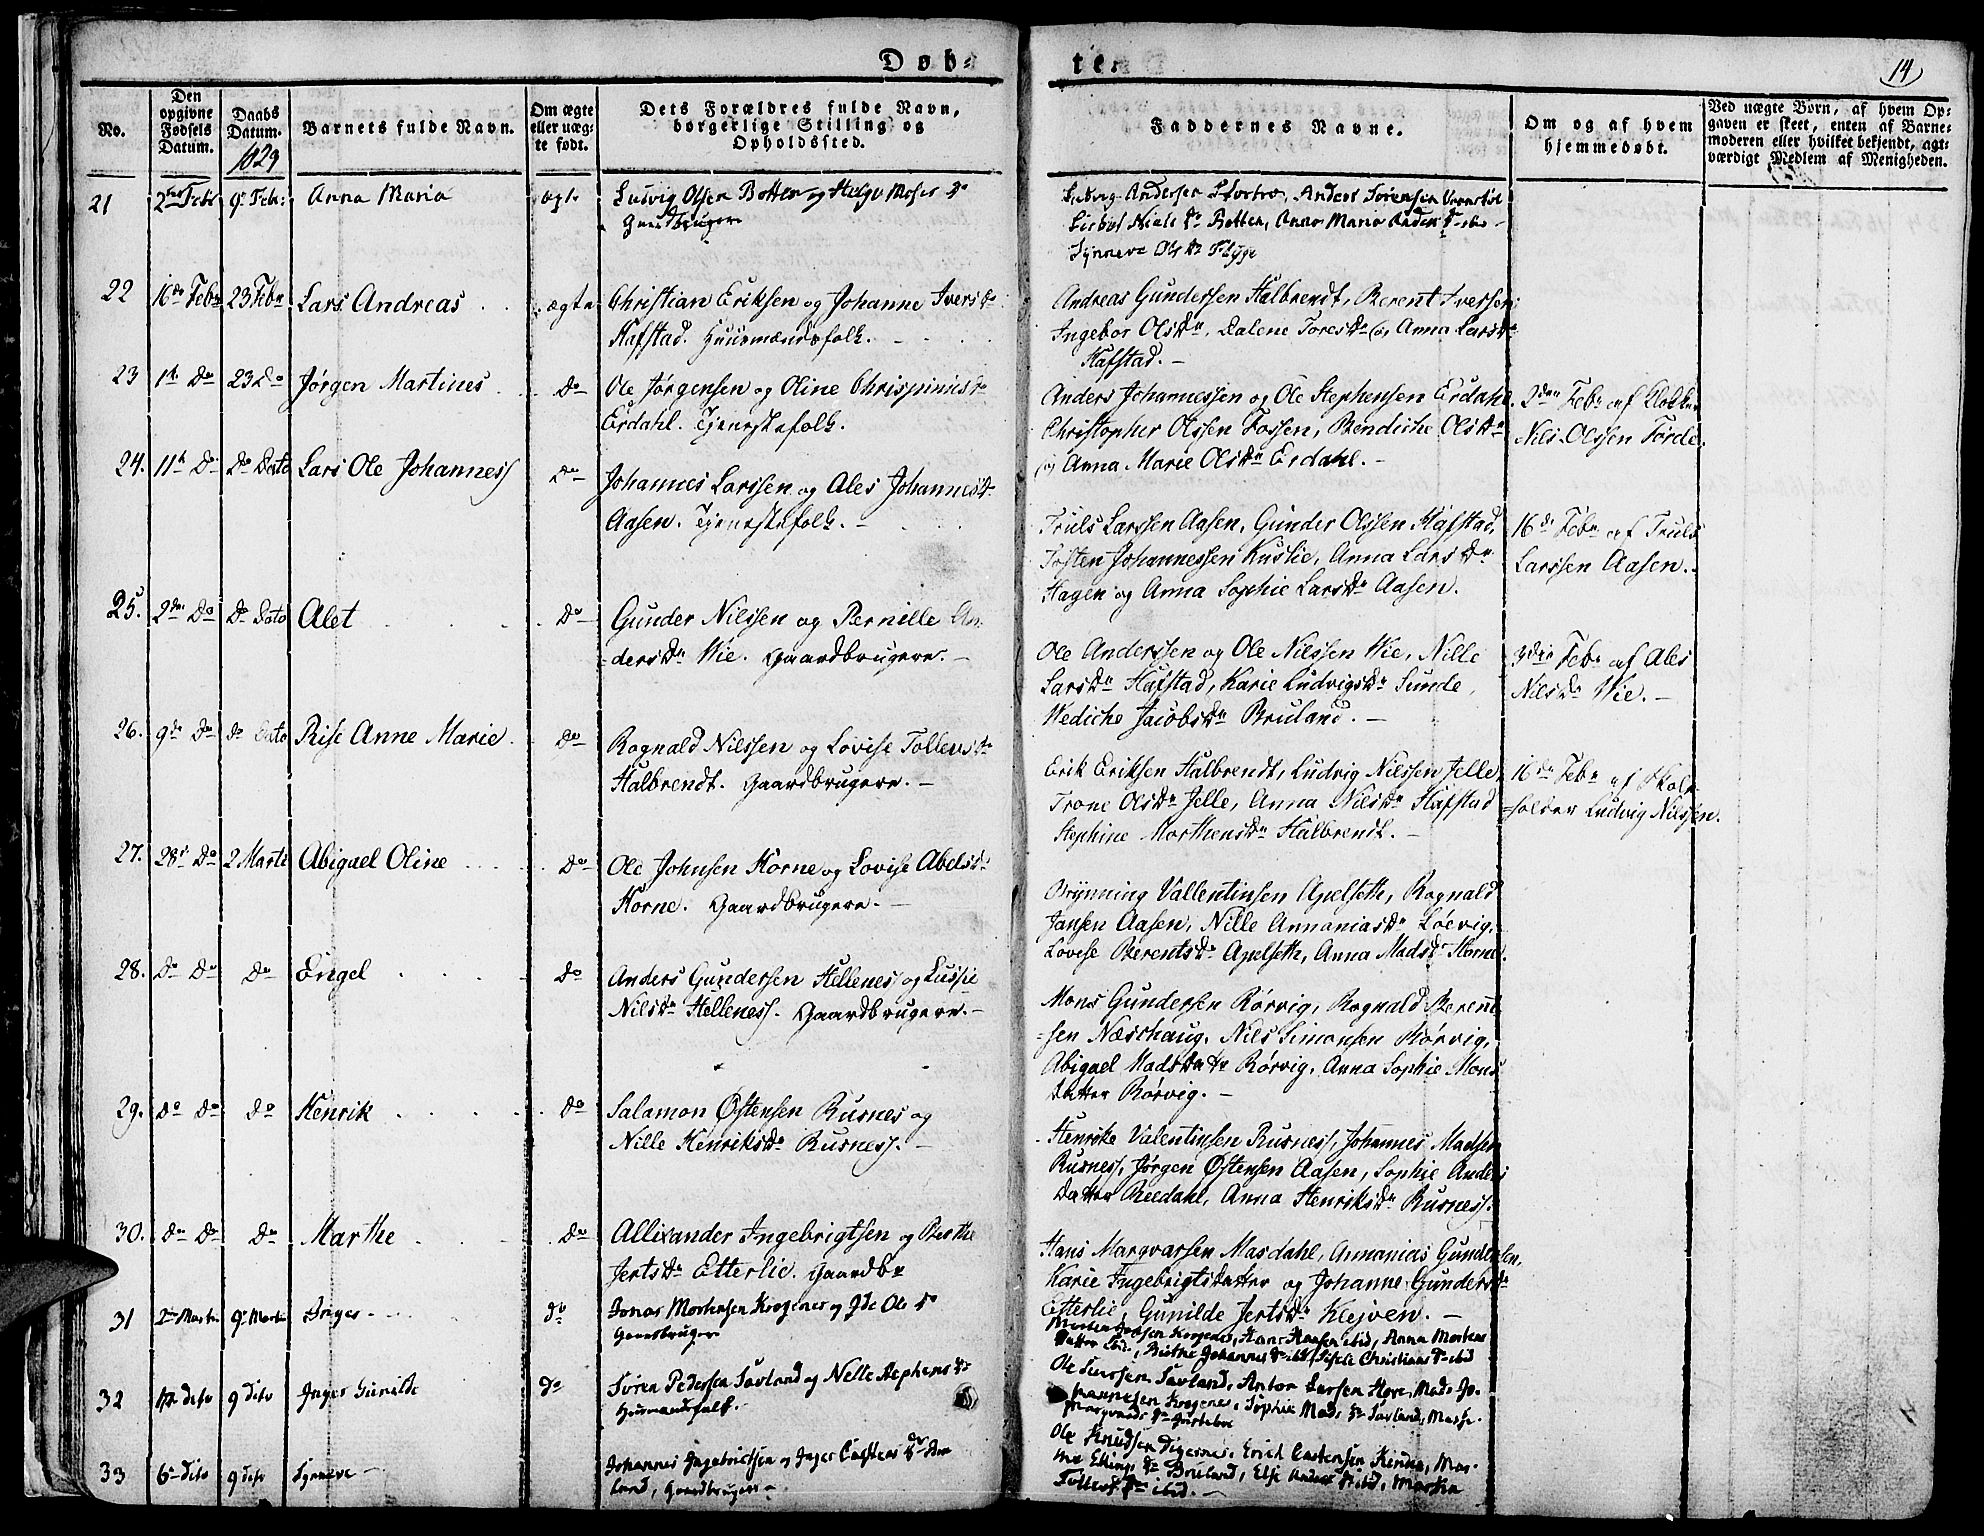 Døbte.
14
No.
Den opgivne Fødsels Datum.
Daabs Datum.
1829
Barnets fulde Navn.
Om ægte eller uægte født.
Dets Forældres fulde Navn, borgerlige Stilling og Opholdssted.
Faddernes Navne.
Om og af hvem hjemmedøbt.
Ved uægte Børn, af hvem Opgaven er skeet, enten af Barnemoderen eller hvilket bekjendt, agtværdigt Medlem af Menigheden.
21 2den Febr 9de Febr: Anna Maria ægte Ludvig Olsen Botten og Helge Moses Dr
Gaardbruger
Ludvig Andersen, Anders Sørensen
Lisbet Niels Dr Botten, Anna Maria Anders Dr ibid
Synneve Ols Dr Flyge
22 16de Febr 23 Febr Lars Andreas ægte Christian Eriksen og Johanne Ivers Dr
Hafstad. Huusmandsfolk.
Andreas Gundersen Halbrendt, Berent Iversen
Ingebor Ols Dr, Dalene Tores Dr og Anna Lars Dr
Hafstad.
23 1te Do 23 Do Jørgen Martines Do Ole Jørgensen og Oline Chrispinus Dr
Erdahl. Tjenestefolk.
Anders Johannessen og Ole Stephensen Erdahl.
Christopher Olssen Fossen, Bendiche Ols Dr
og Anna Marie Ols Dr Erdahl.
2den Febr af Klokker
Nils Olssen Førde.
24. 11te Do Do Dato Lars Ole Johanness Do Johannes Larssen og Ales Johannes Dr
Aasen. Tjenestefolk.
Truls Larssen Aasen, Gunder Olssen Hafstad,
Tosten Johannessen Kuslie, Anna Lars Dr
Hagen og Anna Sophie Lars Dr Aasen.
16de Febr af Truls
Larssen Aasen.
25. 2den Do Do Dato Alet Do Gunder Nilssen og Pernille An-
ders Dr Wie. Gaardbrugere.
Ole Anderssen og Ole Nilssen Wie, Nille
Lars Dr Hafstad, Karie Ludvigs Dr Sunde,
Wediche Jacobs Dr Bruland.
3die Febr af Ales
Nils Dr Wie.
26. 9de Do Do Dato Rise Anne Marie Do Rognald Nilssen og Lovise Tollevs Dr
Halbrendt. Gaardbrugere.
Erik Eriksen Halbrendt, Ludvig Nilssen Jelle,
Trone Ols Dr Jelle, Anna Nils Dr Hafstad
Stephine Morthens Dr Halbrendt.
16de Febr af Skole-
holder Ludvig Nilssen.
27. 28de Do 2 Marts Abigael Oline Do Ole Johnsen Horne og Lovise Abels Dr
Horne. Gaardbrugere.
Brynning Vallentinsen Apelseth, Rognald
Jansen Aasen, Nille Annanias Dr Løevig,
Lovise Berents Dr Apelseth, Anna Mads Dr Horne.
28. Do Do Do Engel Do Anders Gundersen Hellenes og Lussie
Nils Dr Helleness. Gaardbrugere.
Mons Gundersen Rørvig, Rognald Berent-
sen Næsshaug, Nils Simonsen Rørvig,
Abigael Mads Datter Rørvig, Anna Sophie Mons
Datter Rørvig.
29. Do Do Do Henrik Do Salamon Østensen Rusnes og
Nille Henriks Dr Rusness.
Henrike Valentinsen Rusness, Johannes Madsen
Rusness, Jørgen Østensen Aasen, Sophie Anders
Datter Reedahl, Anna Henriks Dr Rusness.
30. Do Do Do Marthe Do Allixander Ingebrigtsen og Berthe
Jerts Dr Etterlie. Gaardbr
Hans Marqvarsen Masdahl, Annanias Gundersen,
Karie Ingebrigtsdatter og Johanne Gunders Dr
Etterlie, Gunilde Jerts Dr Klejven.
31 2den Marts 9de Marts Inger Do Jonas Mortensen Krogenes og Ide Ols Dr
Gaardbruger
Morten Krogenes, Hans Hansen ibid, Anna Mortens
Datter ibid, Birthe Johannes Dr ibid, Sisele Christians Dr ibid
32 dito 9 dito Inger Gunilde Do Søren Pedersen Savland og Nelle Stephens Dr
Huusmandsfolk.
Ole Savland, Anton Larsen Hove, Mads Jo-
hannesen Krogenes, Sophie Mads Dr Savland,
Marqvards Dr
33 6te dito 9 dito Synneve Johannes Ingebrictsen og Inger Carstens Dr Bru
land, Gaardbrugere
Ole Knudsen Digernes, Erich Carstensen, Mar-
the Ellings Dr Bruland, Else Anders Dr ibid, Martha
Tollefs Dr ibid.